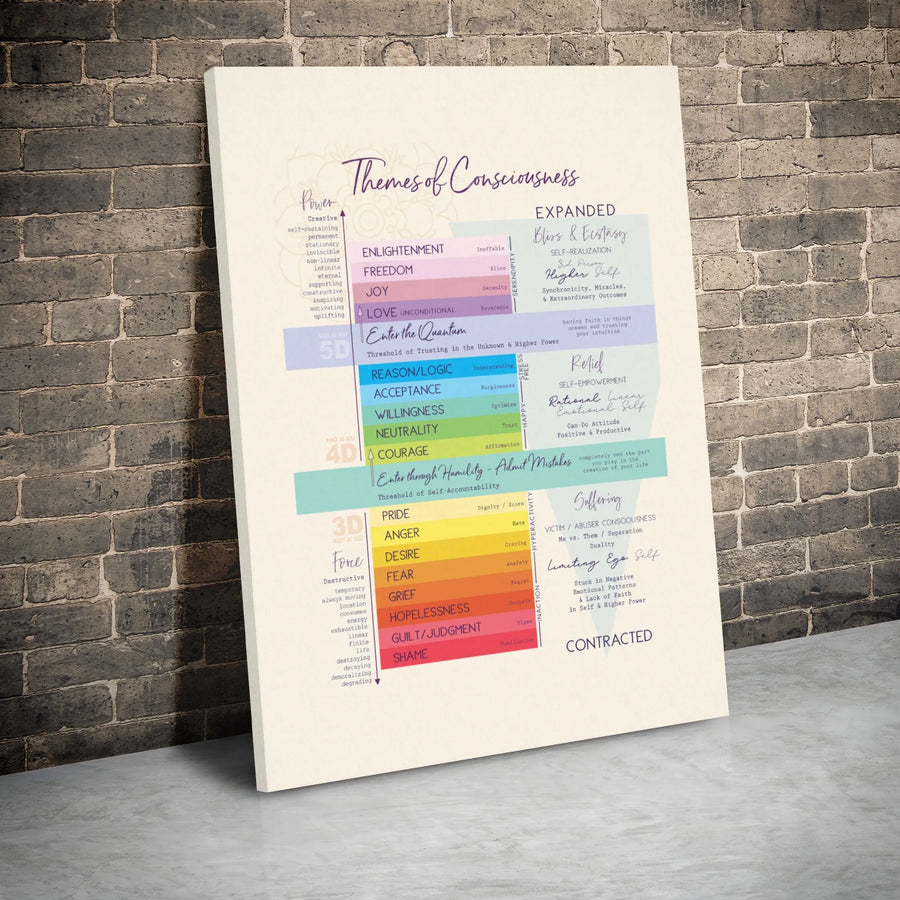 Themes of Consciousness
Power
Creative
self-sustaining
permanent
stationary
invincible
non-linear
infinite
eternal
supporting
constructive
inspiring
motivating
uplifting
EXPANDED
ENLIGHTENMENT Ineffable
FREEDOM Bliss
JOY Serenity
LOVE UNCONDITIONAL Reverence
SERENDIPITY
Bliss & Ecstasy
SELF-REALIZATION
3rd Person
Higher Self
Synchronicity, Miracles,
& Extraordinary Outcomes
5D
Enter the Quantum
Threshold of Trusting in the Unknown & Higher Power
having faith in things
unseen and trusting
your intuition
REASON/LOGIC Understanding
ACCEPTANCE Forgiveness
WILLINGNESS Optimism
NEUTRALITY Trust
COURAGE Affirmation
STRESS
FREE
HAPPY
Relief
SELF-EMPOWERMENT
Rational Linear
Emotional Self
Can-Do Attitude
Positive & Productive
4D
Enter through Humility - Admit Mistakes
Threshold of Self-Accountability
completely own the part
you play in the
creation of your life
3D
Force
Destructive
temporary
always moving
location
consumes
energy
exhaustible
linear
finite
life
destroying
decaying
demoralizing
degrading
PRIDE Dignity / Scorn
ANGER Hate
DESIRE Craving
FEAR Anxiety
GRIEF Regret
HOPELESSNESS Despair
GUILT/JUDGMENT Blame
SHAME Humiliation
HYPERACTIVITY
INACTION
Suffering
VICTIM / ABUSER CONSCIOUSNESS
Me vs. Them / Separation
Duality
Limiting Ego Self
Stuck in Negative
Emotional Patterns
& Lack of Faith
in Self & Higher Power
CONTRACTED